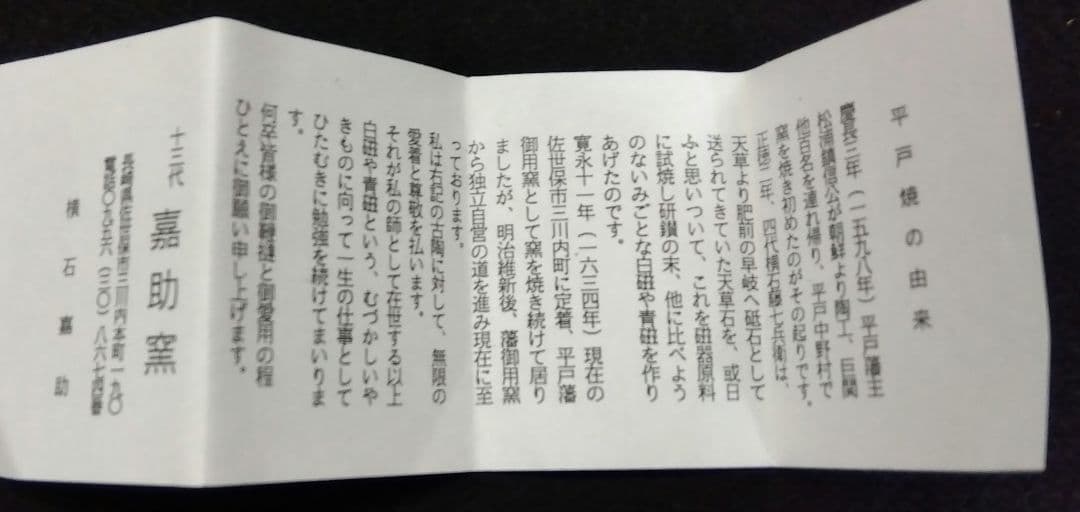 平戸焼の由来
慶長三年（一五九八年）平戸藩主
松浦鎮信公が朝鮮より陶工、巨関
他百名を連れ帰り、平戸中野村で
窯を焼き初めたのがその起りです。
正徳二年、四代横石藤七兵衛は、
天草より肥前の早岐へ砥石として
送られてきていた天草石を、或日
ふと思いついて、これを磁器原料
に試焼し研鑽の末、他に比べよう
のないみごとな白磁や青磁を作り
あげたのです。
寛永十一年（一六三四年）現在の
佐世保市三川内町に定着、平戸藩
御用窯として窯を焼き続けて居り
ましたが、明治維新後、藩御用窯
から独立自営の道を進み現在に至
っております。
私は右記の古陶に対して、無限の
愛着と尊敬を払います。
それが私の師として在世する以上
白磁や青磁という、むづかしいや
きものに向って一生の仕事として
ひたむきに勉強を続けてまいりま
す。
何卒皆様の御鞭撻と御愛用の程
ひとえに御願い申し上げます。
十三代 嘉助窯
長崎県佐世保市三川内本町一九〇
電話〇九五六（三〇）八六七四番
横石嘉助